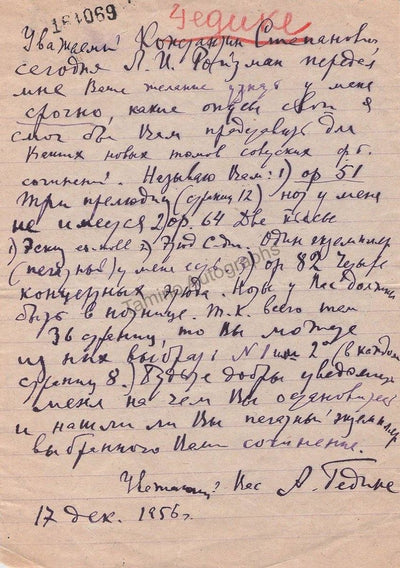 184069
Гедике
Уважаемый Константин Степанович,
сегодня Л. И. Ройзман передал
мне Ваше желание узнать у меня
срочно, какие опусы свои я
смог бы Вам предложить для
Ваших новых томов советских ф.
сочинений. Называю Вам: 1) op 51
Три прелюдии (страниц 12) но у меня
не имеется 2) op. 64 Две пьесы
1) Эскиз es-moll 2) Этюд C-dur. Один экземпляр
(печатный) у меня есть. op 82 Четыре
концертных этюда. Ноты у Вас должны
быть в т.к. всего там
36 страниц, то Вы можете
из них выбрать N 1 или 2 (в каждом
страниц 8.) Будьте добры уведомить
меня на чем Вы остановитесь
и нашли ли Вы печатный экземпляр
выбранного Вами сочинения.
Уважающий Вас А. Гедике
17 дек. 1956 г.
Tamino Autographs